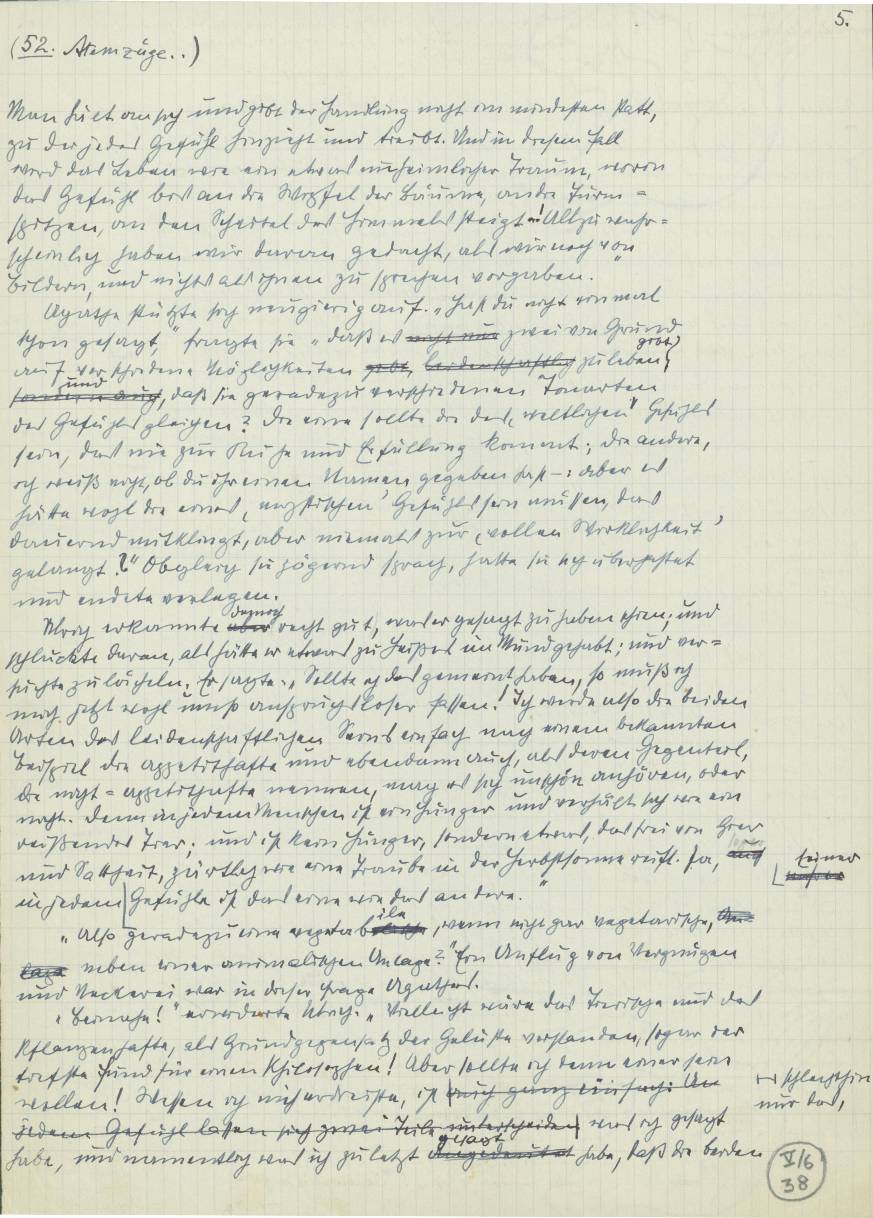 5.
(52. Atemzüge..)
Man hält an sich und gibt der Handlung nicht im mindesten statt,
zu der jedes Gefühl hinzieht und treibt. Und in diesem Fall
wird das Leben wie ein etwas unheimlicher Traum, worin
das Gefühl bis an die Wipfel der Bäume, an die Turm=
spitzen, an den Scheitel des Himmels steigt! Allzu wahr=
scheinlich haben wir daran gedacht, als wir noch von
Bildern, und nichts als ihnen zu sprechen vorgaben.
Agathe stützte sich neugierig auf. „Hast du nicht einmal
schon gesagt," fragte sie „daß es nicht nur zwei von Grund
auf verschiedene Möglichkeiten gebe, leidenschaftlich zu leben gibt,
sondern auch, und daß sie geradezu verschiedenen Tonarten
des Gefühls gleichen? Die eine sollte die des ‚weltlichen' Gefühls
sein, das nie zur Ruhe und Erfüllung kommt; die andere,
ich weiß nicht, ob du ihr einen Namen gegeben hast –: aber es
hätte wohl die eines ‚mystischen' Gefühls sein müssen, das
dauernd mitklingt, aber niemals zur ‚vollen Wirklichkeit'
gelangt?" Obgleich sie zögernd sprach, hatte sie sich überhastet
und endete verlegen.
Ulrich erkannte aber dennoch recht gut, was er gesagt zu haben schien; und
schluckte daran, als hätte er etwas zu Heißes im Mund gehabt; und ver=
suchte zu lächeln. Er sagte: „Sollte ich das gemeint haben, so muß ich
mich jetzt wohl umso anspruchsloser fassen! Ich werde also die beiden
Arten des leidenschaftlichen Seins einfach nach einem bekannten
Beispiel die appetithafte und ebendann auch, als deren Gegenteil,
die nicht=appetithafte nennen, mag es sich unschön anhören, oder
nicht. Denn in jedem Menschen ist ein Hunger und verhält sich wie ein
reißendes Tier; und ist kein Hunger, sondern etwas, das frei von Gier
und Sattheit, zärtlich wie eine Traube in der Herbstsonne reift. Ja, auch
in jedem seiner Gefühle ist das eine wie das andere."
„Also geradezu eine vegetabile, wenn nicht gar vegetarische, An=
lage neben einer animalischen Anlage?" Ein Anflug von Vergnügen
und Neckerei war in dieser Frage Agathes.
„Beinahe!" erwiderte Ulrich. „Vielleicht wäre das Tierische und das
Pflanzenhafte, als Grundgegensatz der Gelüste verstanden, sogar der
tiefste Fund für einen Philosophen! Aber sollte ich denn einer sein
wollen! Wessen ich mich erdreiste, ist auch ganz einfach: An
schlechthin
nur das,
jedem Gefühl lassen sich zwei Teile unterscheiden was ich gesagt
habe, und namentlich was ich zuletzt angedeutet gesagt habe, daß die beiden
V/6
38